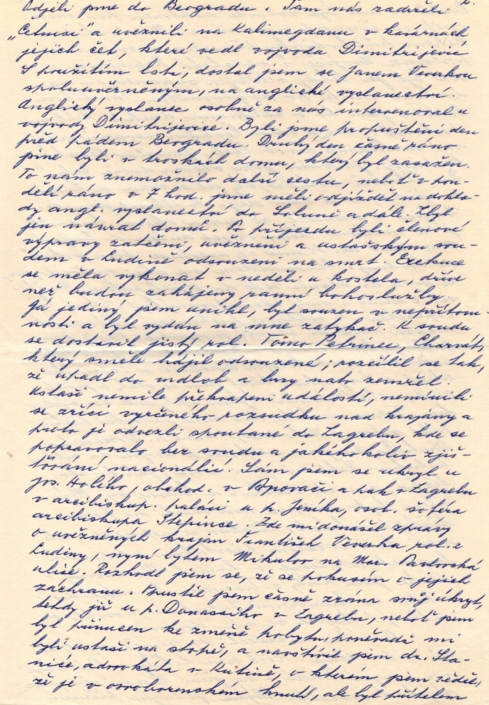 Odjeli jsme do Beogradu. Tam nás zadrželi
"Četnici" a uvěznili na Kalimegdanu v kasárnách
jejich čet, které vedl vojvoda Dimitrijević
S použitím lsti, dostal jsem se Janem Vevrkou
spoluuvězněným, na anglické vyslanectví.
Anglický vyslanec osobně za nás intervenoval u
vojvody Dimitrijeviće. Byli jsme propuštěni den
před pádem Beogradu. Druhý den časně ráno
jsme byli v troskách domu, který byl zasažen.
To nám znemožnilo další cestu, neboť v pon-
dělí ráno v 7 hod. jsme měli odjíždět na dokla-
dy angl. vyslanectví do Soluně a dále. Zbyl
jen návrat domů. Po příjezdu byli členové
výpravy zatčeni, uvězněni a ustašským sou-
dem v Ludině odsouzeni na smrt. Exekuce
se měla vykonat v neděli u kostela, dříve
než budou zahájeny ranní bohoslužby.
Já jediný jsem unikl, byl souzen v nepřítom-
nosti a byl vydán na mne zatykač. K soudu
se dostavil jistý rol. Tomo Petrinec, Charvát,
který směle hájil odsouzené; rozčílil se tak,
že upadl do mdlob a brzy nato zemřel.
Ustaši nemile překvapeni událostí, neminili
se zříci vyřčeného rozsudku nad krajany a
proto je odvezli spoutané do Zagrebu, kde se
popravovalo bez soudu a jakéhokoliv zjiš-
ťování nacionálií. Sám jsem se ukryl u
Jos. Holého, obchod. v Popovači a pak v Zagrebu
v arcibiskup. paláci u p. Jeníka, osob. šoféra
arcibiskupa Stepince. Zde mi donášel zprávy
o uvězněných krajan František Vevrka rol. z
Ludiny, nyní bytem Mikulov na Mor. Pavlovská
ulice. Rozhodl jsem se, že se pokusím o jejich
záchranu. Opustil jsem časně zrána svůj úkryt,
tehdy již u p. Donassiho v Zagrebu, neboť jsem
byl přinucen ke změně pobytu, poněvadž mi
byli ustaši na stopě, a navštívil jsem dr. Sta-
niće, advokáta v Kutině, o kterém jsem věděl,
že je v osvoborenském hnutí, ale byl přítelem